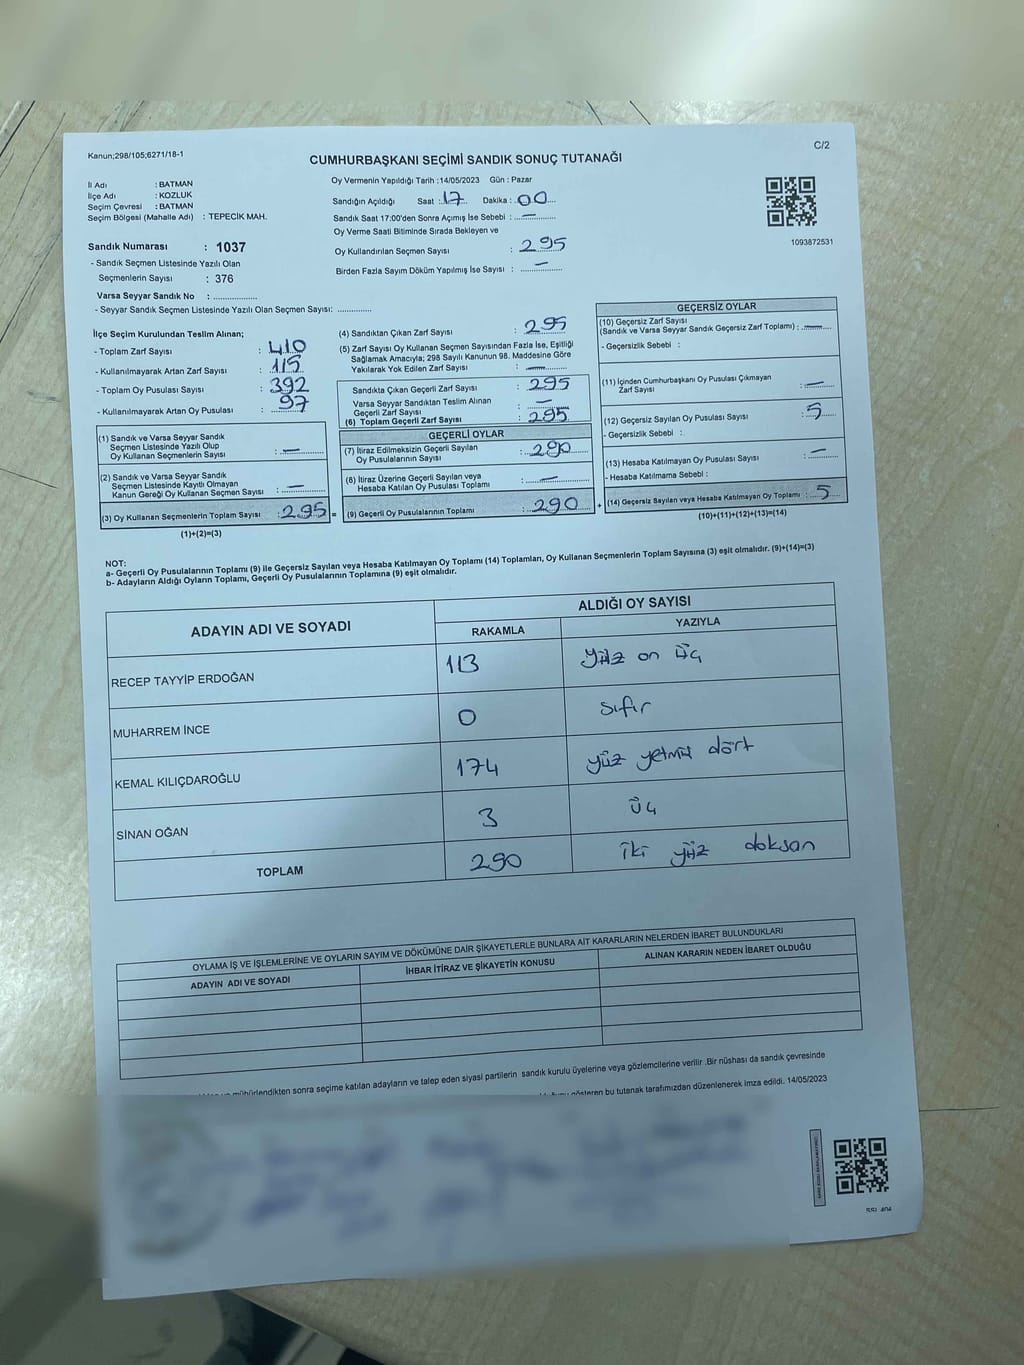 Kanun;298/105;6271/18-1
C/2
CUMHURBAŞKANI SEÇİMİ SANDIK SONUÇ TUTANAĞI
İl Adı : BATMAN
İlçe Adı : KOZLUK
Seçim Çevresi : BATMAN
Seçim Bölgesi (Mahalle Adı) : TEPECİK MAH.
Sandık Numarası : 1037
- Sandık Seçmen Listesinde Yazılı Olan
Seçmenlerin Sayısı : 376
Varsa Seyyar Sandık No : ..............
- Seyyar Sandık Seçmen Listesinde Yazılı Olan Seçmen Sayısı: ............
Oy Vermenin Yapıldığı Tarih :14/05/2023 Gün : Pazar
Sandığın Açıldığı Saat : 17 Dakika : 00
Sandık Saat 17:00'den Sonra Açımış İse Sebebi : —
Oy Verme Saati Bitiminde Sırada Bekleyen ve
Oy Kullandırılan Seçmen Sayısı : 295
Birden Fazla Sayım Döküm Yapılmış İse Sayısı : —
1093872531
İlçe Seçim Kurulundan Teslim Alınan;
- Toplam Zarf Sayısı : 410
- Kullanılmayarak Artan Zarf Sayısı : 115
- Toplam Oy Pusulası Sayısı : 392
- Kullanılmayarak Artan Oy Pusulası : 97
(1) Sandık ve Varsa Seyyar Sandık
Seçmen Listesinde Yazılı Olup
Oy Kullanan Seçmenlerin Sayısı : —
(2) Sandık ve Varsa Seyyar Sandık
Seçmen Listesinde Kayıtlı Olmayan
Kanun Gereği Oy Kullanan Seçmen Sayısı : —
(3) Oy Kullanan Seçmenlerin Toplam Sayısı : 295 =
(1)+(2)=(3)
(4) Sandıktan Çıkan Zarf Sayısı : 295
(5) Zarf Sayısı Oy Kullanan Seçmen Sayısından Fazla İse, Eşitliği
Sağlamak Amacıyla; 298 Sayılı Kanunun 98. Maddesine Göre
Yakılarak Yok Edilen Zarf Sayısı : —
Sandıkta Çıkan Geçerli Zarf Sayısı : 295
Varsa Seyyar Sandıktan Teslim Alınan
Geçerli Zarf Sayısı : —
(6) Toplam Geçerli Zarf Sayısı : 295
GEÇERLİ OYLAR
(7) İtiraz Edilmeksizin Geçerli Sayılan
Oy Pusulalarının Sayısı : 290
(8) İtiraz Üzerine Geçerli Sayılan veya
Hesaba Katılan Oy Pusulası Toplamı : —
(9) Geçerli Oy Pusulalarının Toplamı : 290 +
GEÇERSİZ OYLAR
(10) Geçersiz Zarf Sayısı
(Sandık ve Varsa Seyyar Sandık Geçersiz Zarf Toplamı) : —
- Geçersizlik Sebebi :
(11) İçinden Cumhurbaşkanı Oy Pusulası Çıkmayan
Zarf Sayısı : —
(12) Geçersiz Sayılan Oy Pusulası Sayısı : 5
- Geçersizlik Sebebi :
(13) Hesaba Katılmayan Oy Pusulası Sayısı : —
- Hesaba Katılmama Sebebi :
(14) Geçersiz Sayılan veya Hesaba Katılmayan Oy Toplamı : 5
(10)+(11)+(12)+(13)=(14)
NOT:
a- Geçerli Oy Pusulalarının Toplamı (9) ile Geçersiz Sayılan veya Hesaba Katılmayan Oy Toplamı (14) Toplamları, Oy Kullanan Seçmenlerin Toplam Sayısına (3) eşit olmalıdır. (9)+(14)=(3)
b- Adayların Aldığı Oyların Toplamı, Geçerli Oy Pusulalarının Toplamına (9) eşit olmalıdır.
ADAYIN ADI VE SOYADI
ALDIĞI OY SAYISI
RAKAMLA YAZIYLA
RECEP TAYYİP ERDOĞAN 113 yüz on üç
MUHARREM İNCE 0 sıfır
KEMAL KILIÇDAROĞLU 174 yüz yetmiş dört
SİNAN OĞAN 3 üç
TOPLAM 290 iki yüz doksan
OYLAMA İŞ VE İŞLEMLERİNE VE OYLARIN SAYIM VE DÖKÜMÜNE DAİR ŞİKAYETLERLE BUNLARA AİT KARARLARIN NELERDEN İBARET BULUNDUKLARI
ADAYIN ADI VE SOYADI İHBAR İTİRAZ VE ŞİKAYETİN KONUSU ALINAN KARARIN NEDEN İBARET OLDUĞU
mühürlendikten sonra seçime katılan adayların ve talep eden siyasi partilerin sandık kurulu üyelerine veya gözlemcilerine verilir .Bir nüshası da sandık çevresinde
gösteren bu tutanak tarafımızdan düzenlenerek imza edildi. 14/05/2023